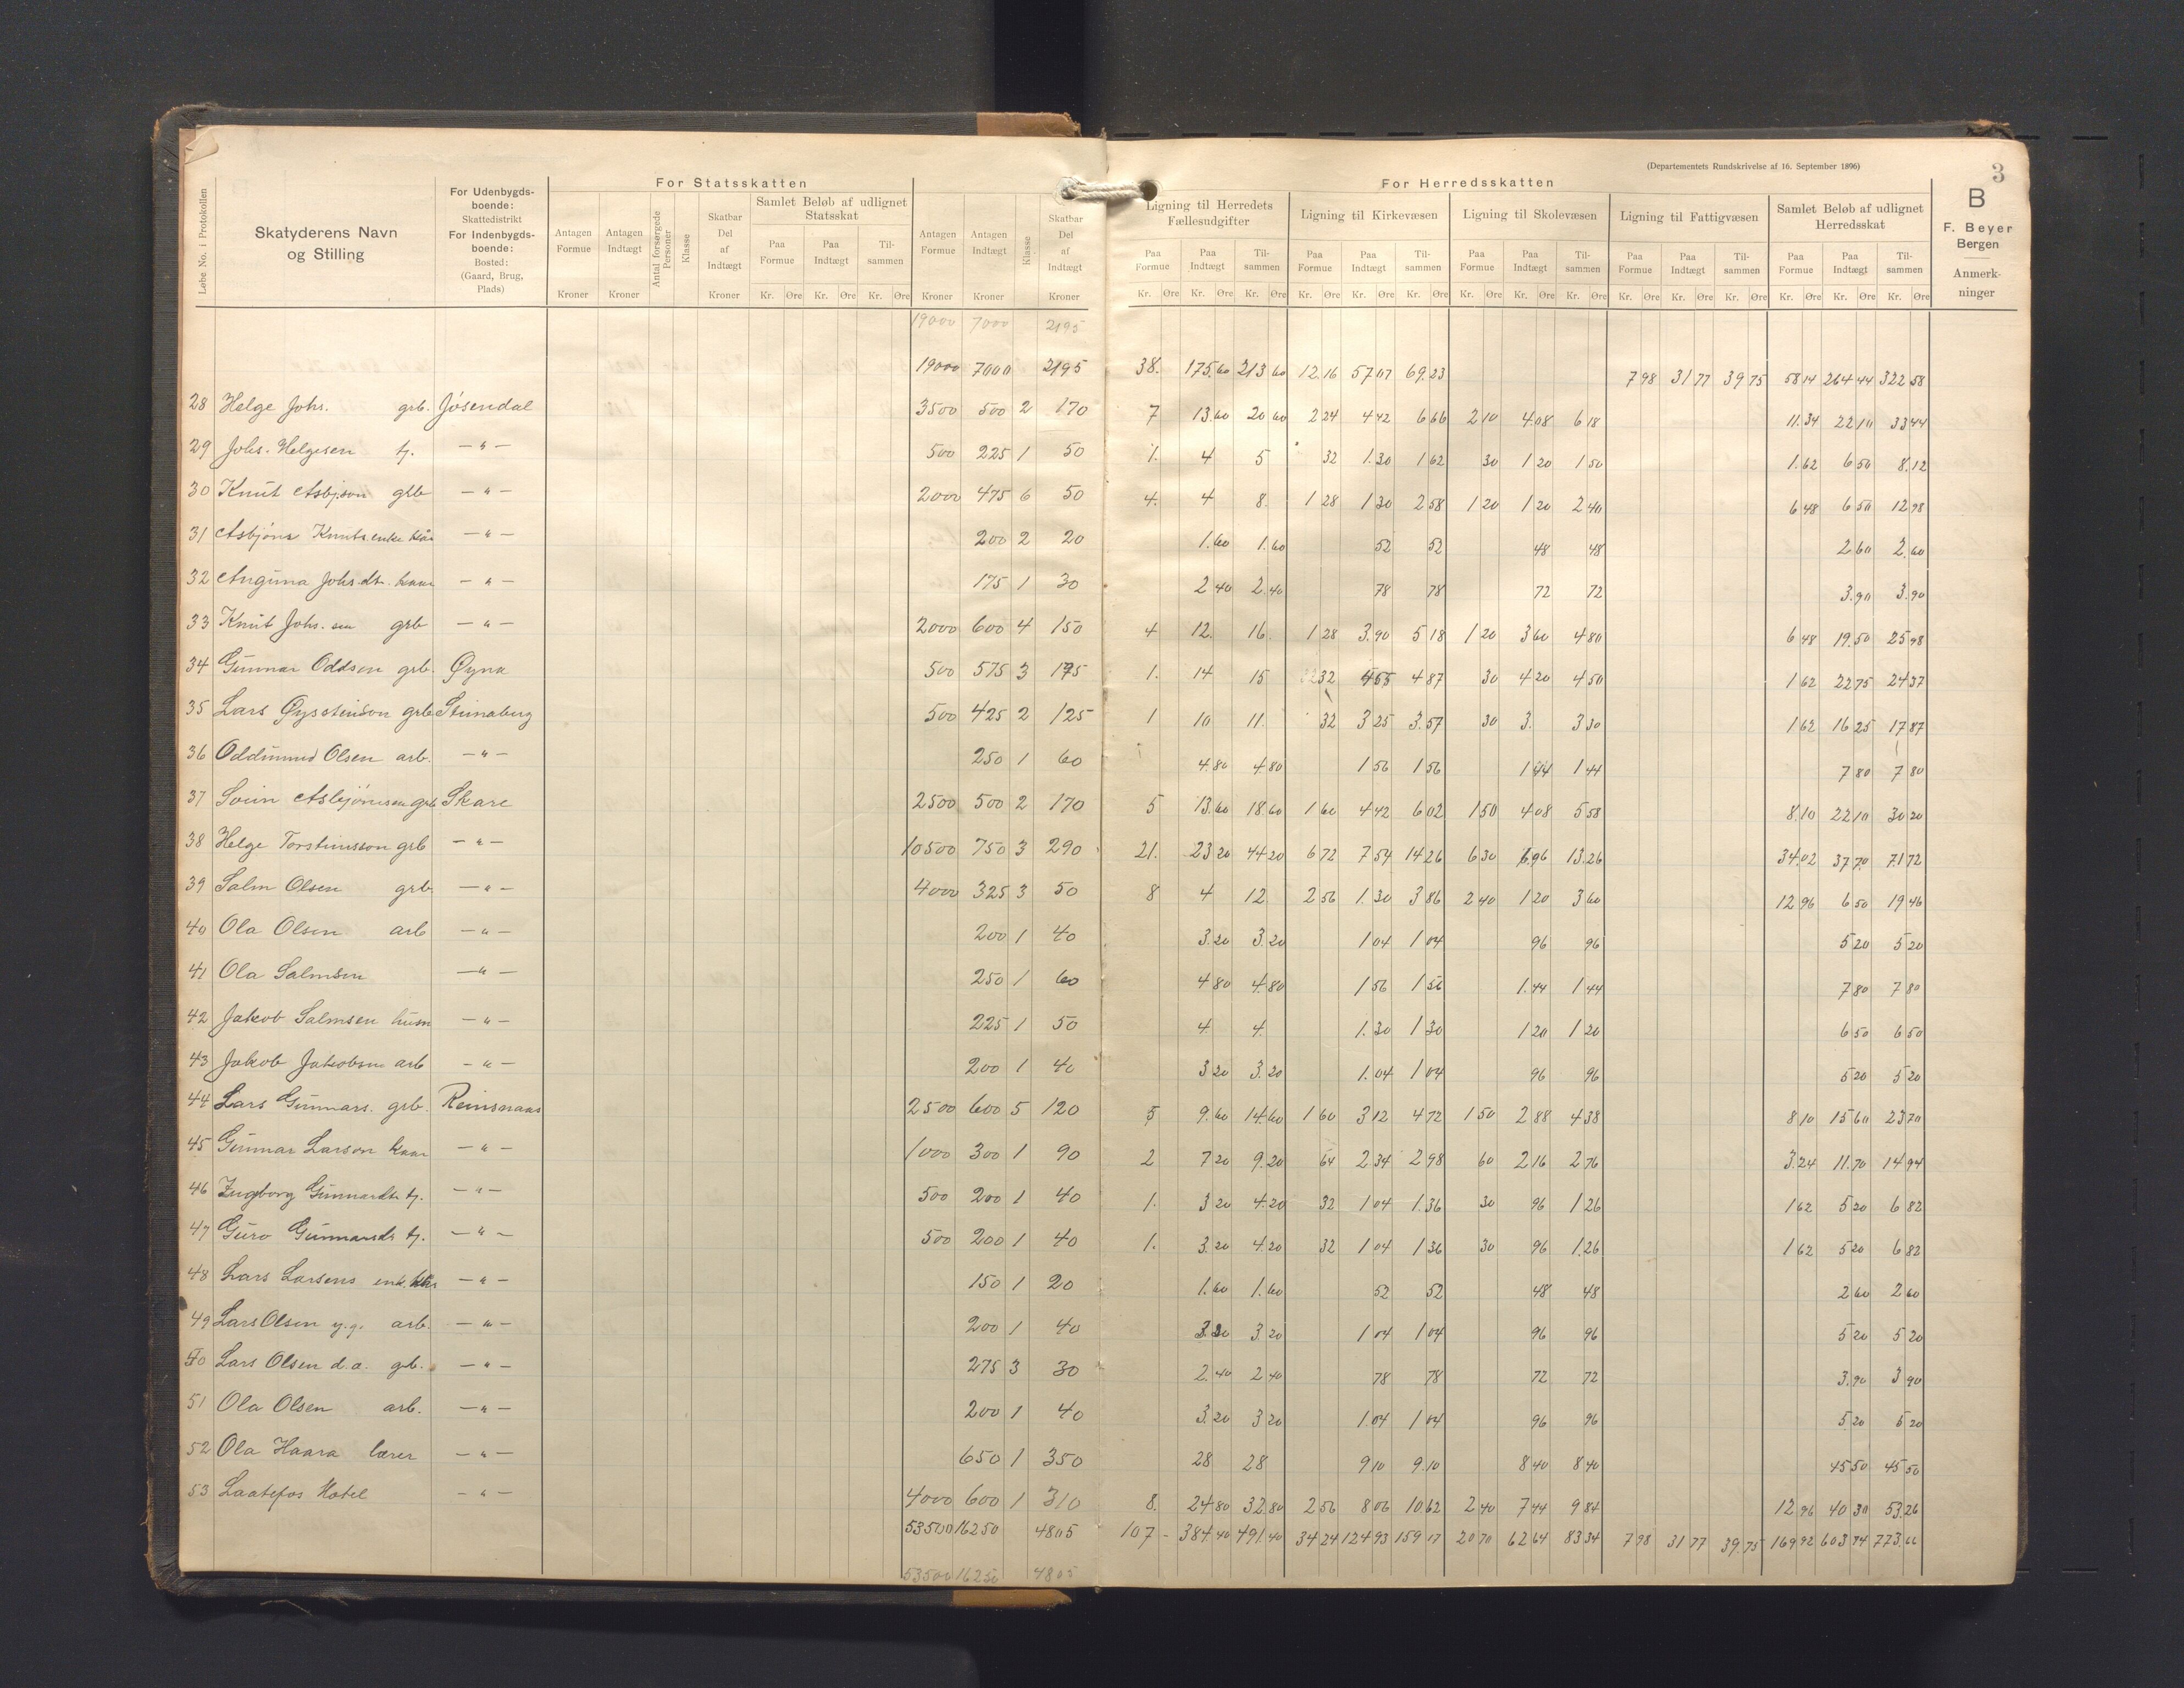 (Departementets Rundskrivelse af 16. September 1896)
3
Løbe No. i Protokollen
Skatyderens Navn og Stilling
For Udenbygdsboende: Skattedistrikt For Indenbygdsboende: Bosted: (Gaard, Brug, Plads)
For Statsskatten
Antagen Formue Kroner
Antagen Indtægt Kroner
Antal forsørgede Personer
Klasse
Skatbar Del af Indtægt Kroner
Samlet Beløb af udlignet Statsskat
Paa Formue Kr. Øre
Paa Indtægt Kr. Øre
Tilsammen Kr. Øre
Antagen Formue Kroner
Antagen Indtægt Kroner
Klasse
Skatbar Del af Indtægt Kroner
For Herredsskatten
Ligning til Herredets Fællesudgifter
Paa Formue Kr. Øre Paa Indtægt Kr. Øre Tilsammen Kr. Øre
Ligning til Kirkevæsen
Paa Formue Kr. Øre Paa Indtægt Kr. Øre Tilsammen Kr. Øre
Ligning til Skolevæsen
Paa Formue Kr. Øre Paa Indtægt Kr. Øre Tilsammen Kr. Øre
Ligning til Fattigvæsen
Paa Formue Kr. Øre Paa Indtægt Kr. Øre Tilsammen Kr. Øre
Samlet Beløb af udlignet Herredsskat
Paa Formue Kr. Øre Paa Indtægt Kr. Øre Tilsammen Kr. Øre
B
F. Beyer
Bergen
Anmerkninger
19000 7000 2195
19000 7000 2195 38. 175.60 213 60 12.16 57 07 69.23 7 98 31 77 39 75 58 14 264 44 322 58
28 Helge Johs. grb. Jøsendal 3500 500 2 170 7 13.60 20 60 2 24 4 42 6 66 2 10 4.08 6 18 11.34 22 10 33 44
29 Johs. Helgesen tj. — " — 500 225 1 50 1. 4 5 32 1.30 1 62 30 1 20 1 50 1.62 6 50 8.12
30 Knut Asbjson grb — " — 2000 475 6 50 4. 4 8. 1 28 1 30 2 58 1 20 1 20 2 40 6 48 6 50 12 98
31 Asbjöns Knuts enke — " — 200 2 20 1.60 1.60 52 52 48 48 2 60 2.60
32 Anguna Johs.dt. kaar — " — 175 1 30 2 40 2.40 78 78 72 72 3.90 3.90
33 Knut Johs. sen grb — " — 2000 600 4 150 4 12. 16. 1 28 3.90 5 18 1 20 3 60 4 80 6 48 19.50 25 98
34 Gunnar Oddsen grb. Øyna 500 575 3 175 1. 14 15 32 4 55 4 87 30 4 20 4 50 1 62 22 75 24 37
35 Lars Øysteinson grb Steinaberg 500 425 2 125 1 10 11. 32 3 25 3.57 30 3. 3 30 1 62 16 25 17 87
36 Oddmund Olsen arb. — " — 250 1 60 4.80 4.80 1 56 1 56 1 44 1 44 7 80 7 80
37 Asbjörnsen grb Skare 2500 500 2 170 5 13.60 18.60 1 60 4 42 6 02 1 50 4 08 5 58 8.10 22 10 30 20
38 Helge Torsteinsson grb — " — 10500 750 3 290 21. 23 20 44 20 6 72 7 54 14 26 6 30 6.96 13.26 34.02 37.70 71 72
39 Salm Olsen grb — " — 4000 325 3 50 8 4 12 2 56 1.30 3 86 2 40 1 20 3 60 12 96 6 50 19 46
40 Ola Olsen arb — " — 200 1 40 3.20 3.20 1 04 1 04 96 96 5 20 5 20
41 Ola Salmsen — " — 250 1 60 4 80 4.80 1 56 1 56 1.44 1 44 7 80 7 80
42 Jakob Salmsen husm — " — 225 1 50 4 4. 1.30 1 30 1 20 1 20 6 50 6 50
43 Jakob Jakobsen arb — " — 200 1 40 3 20 3.20 1.04 1 04 96 96 5 20 5 20
44 Lars Gunnars. grb. Reinsnaas 2500 600 5 120 5 9.60 14.60 1 60 3 12 4 72 1 50 2 88 4 38 8 10 15 60 23 70
45 Gunnar Larson kaar — " — 1000 300 1 90 2 7 20 9.20 64 2.34 2 98 60 2 16 2 76 3.24 11.70 14 94
46 Ingborg Gunnarsdt. tj. — " — 500 200 1 40 1. 3 20 4.20 32 1 04 1.36 30 96 1 26 1 62 5 20 6 82
47 Guro Gunnarsdt tj. — " — 500 200 1 40 1. 3.20 4.20 32 1 04 1 36 30 96 1.26 1 62 5 20 6 82
48 Lars Larsens enke — " — 150 1 20 1.60 1.60 52 52 48 48 2 60 2 60
49 Lars Olsen y.g. arb. — " — 200 1 40 3.20 3.20 1 04 1 04 96 96 5 20 5 20
50 Lars Olsen d.a. grb. — " — 275 3 30 2.40 2 40 78 78 72 72 3.90 3 90
51 Ola Olsen arb. — " — 200 1 40 3.20 3 20 1.04 1 04 96 96 5 20 5 20
52 Ola Haara lærer — " — 650 1 350 28 28 9 10 9.10 8 40 8 40 45 50 45 50
53 Laatefos Hotel — " — 4000 600 1 310 8. 24 80 32.80 2 56 8 06 10 62 2 40 7 44 9 84 12 96 40 30 53.26
53500 16250 4805 107 - 384.40 491.40 34 24 124 93 159 17 20 70 62 64 83 34 7 98 31 77 39.75 169 92 603 74 773.66
53500 16250 4805